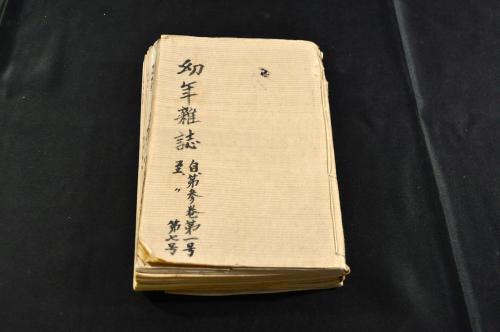 幼年雜誌
自第参巻第一号
至〃第七号